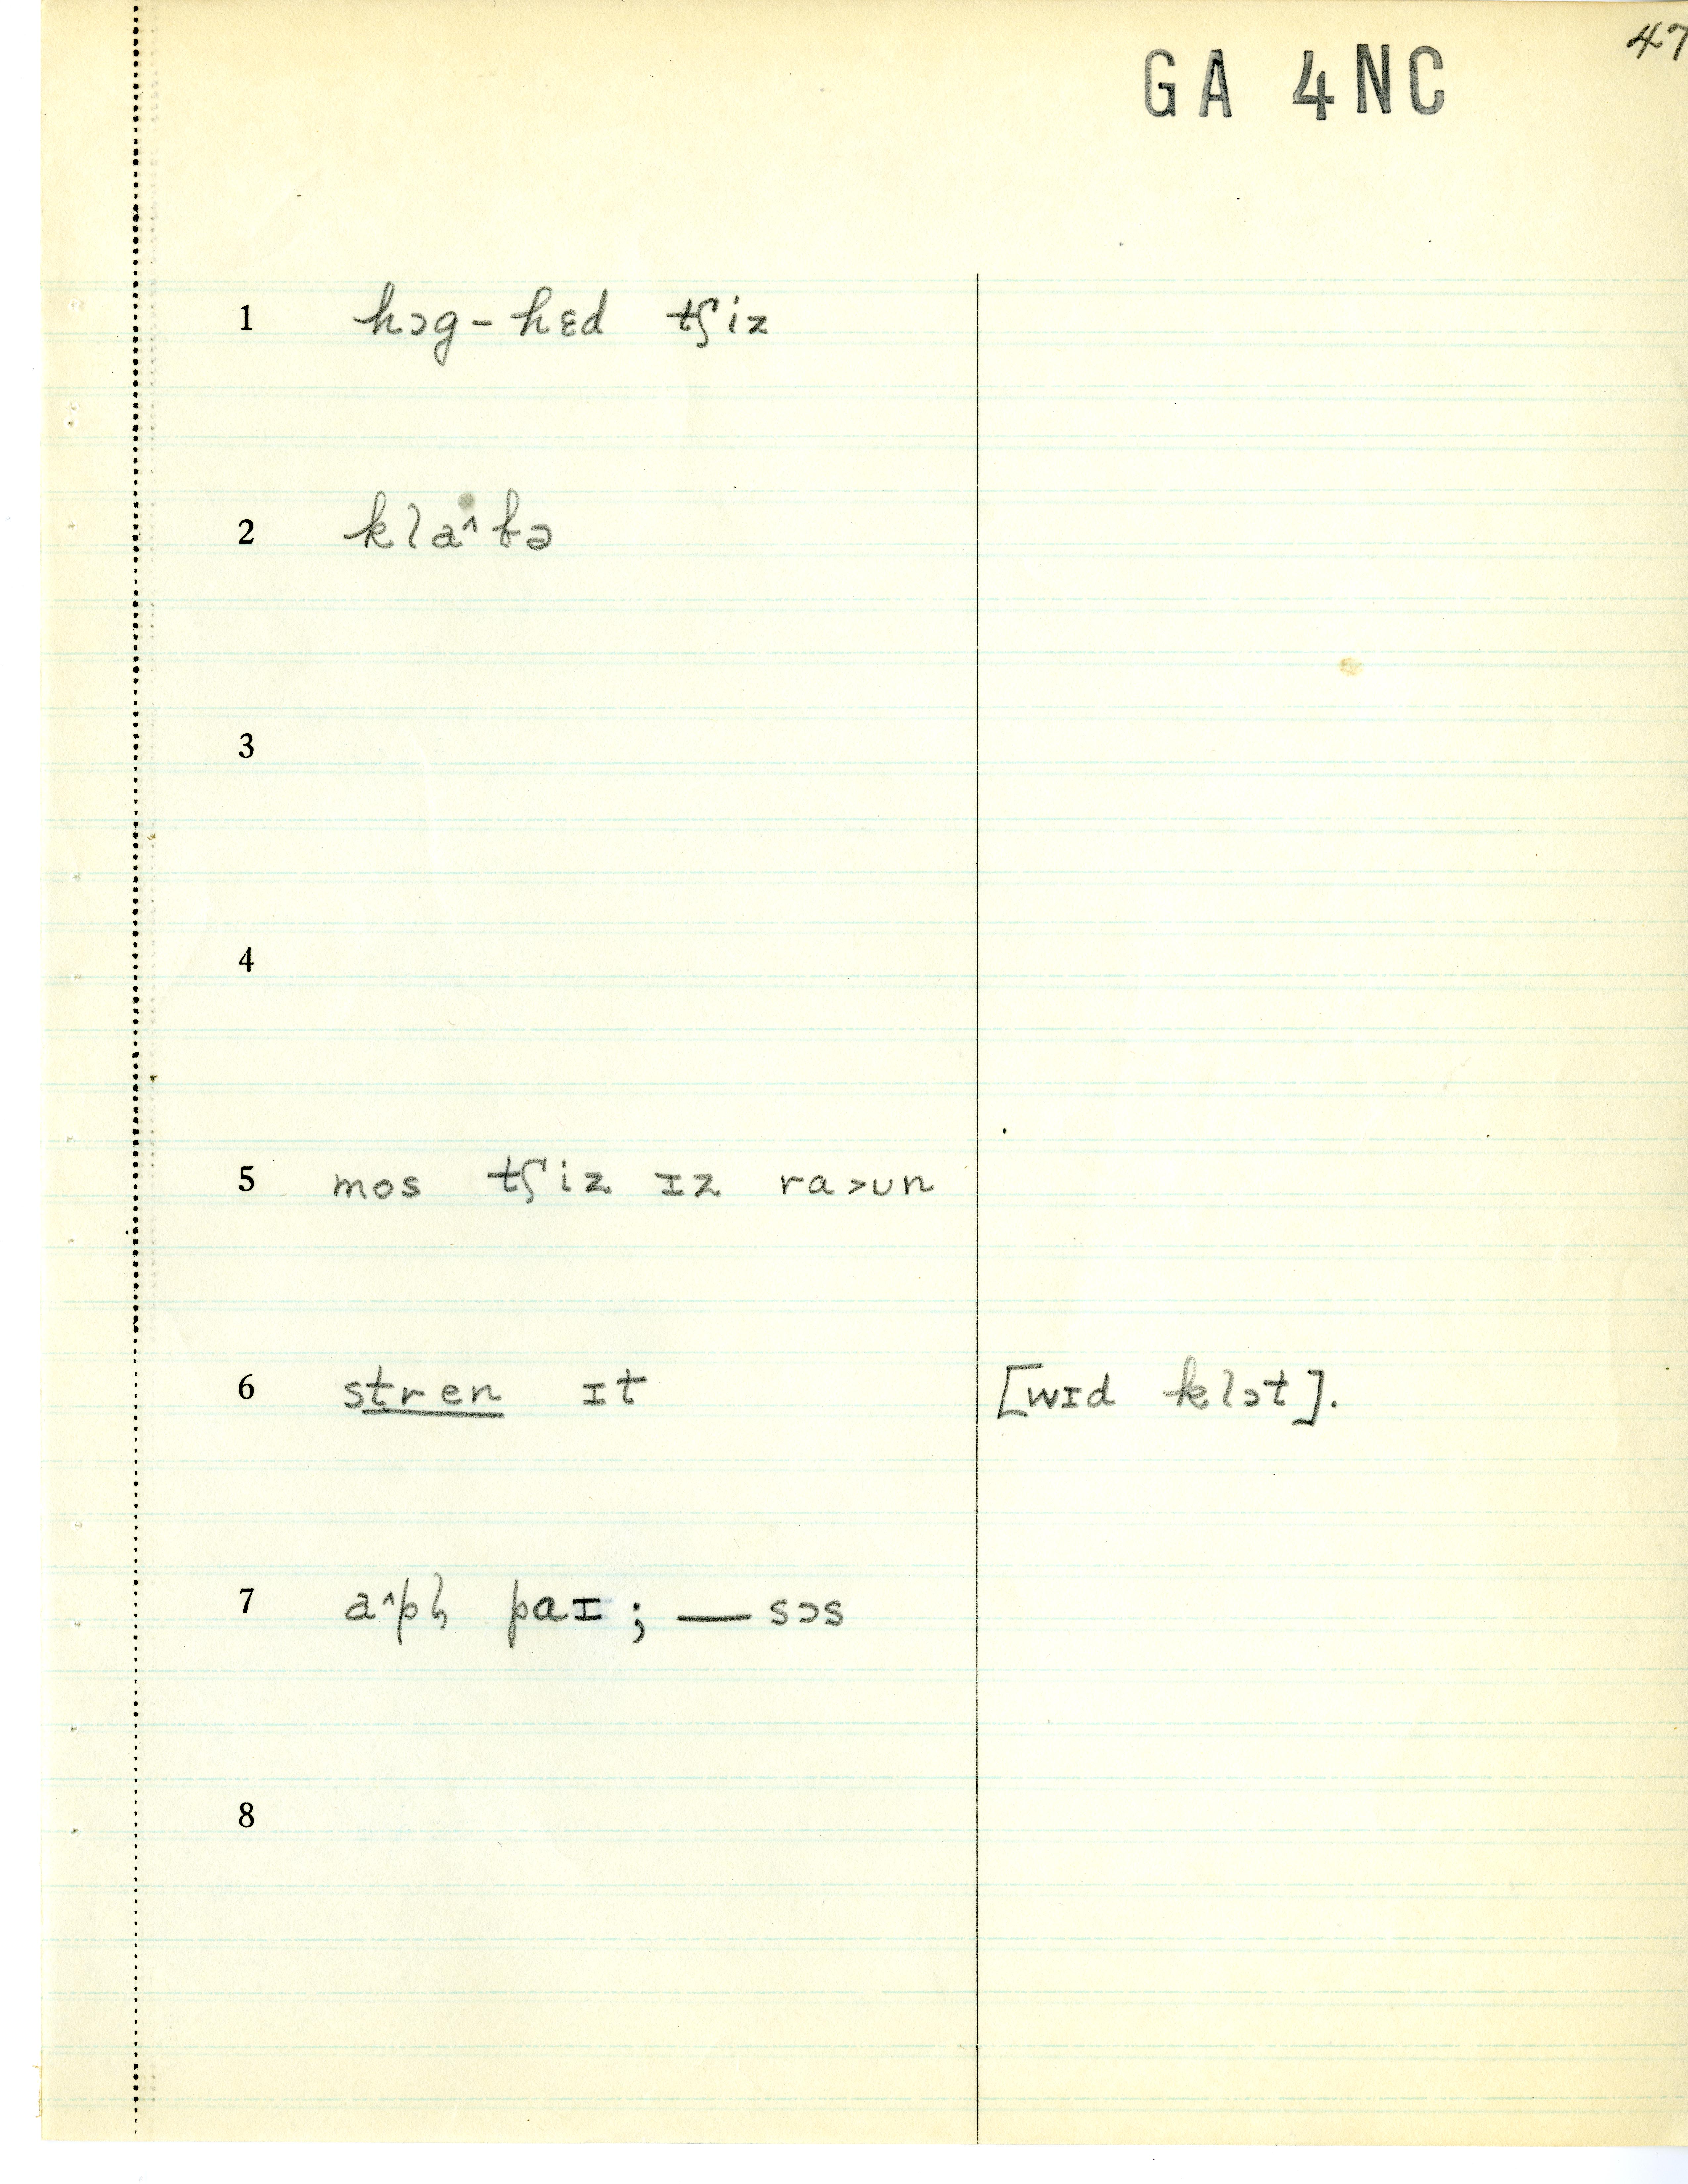 47
GA 4NC
1 hɔg-hɛd tʃiz
2 klaˆbə
3
4
5 mos tʃiz ɪz ra>ʊn
6 stren ɪt [wɪd klɔt].
7 aˆpl̩ paɪ; — sɔs
8